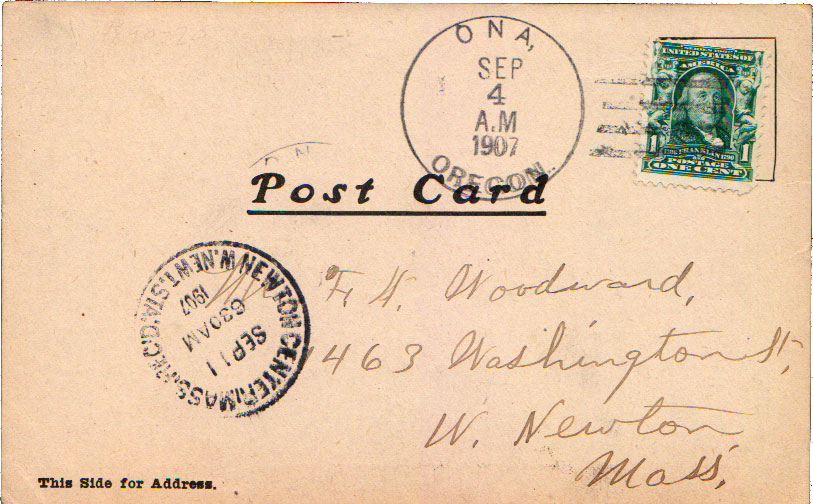 ONA,
SEP
4
A.M
1907
OREGON.
UNITED STATES OF
AMERICA
1 FRANKLIN 1
POSTAGE
ONE CENT
Post Card
NEWTON CENTER, MASS. REC'D. W. NEWT. STA.
1907
630AM
SEP 11
F. W. Woodward,
1463 Washington St,
W. Newton
Mass,
This Side for Address.